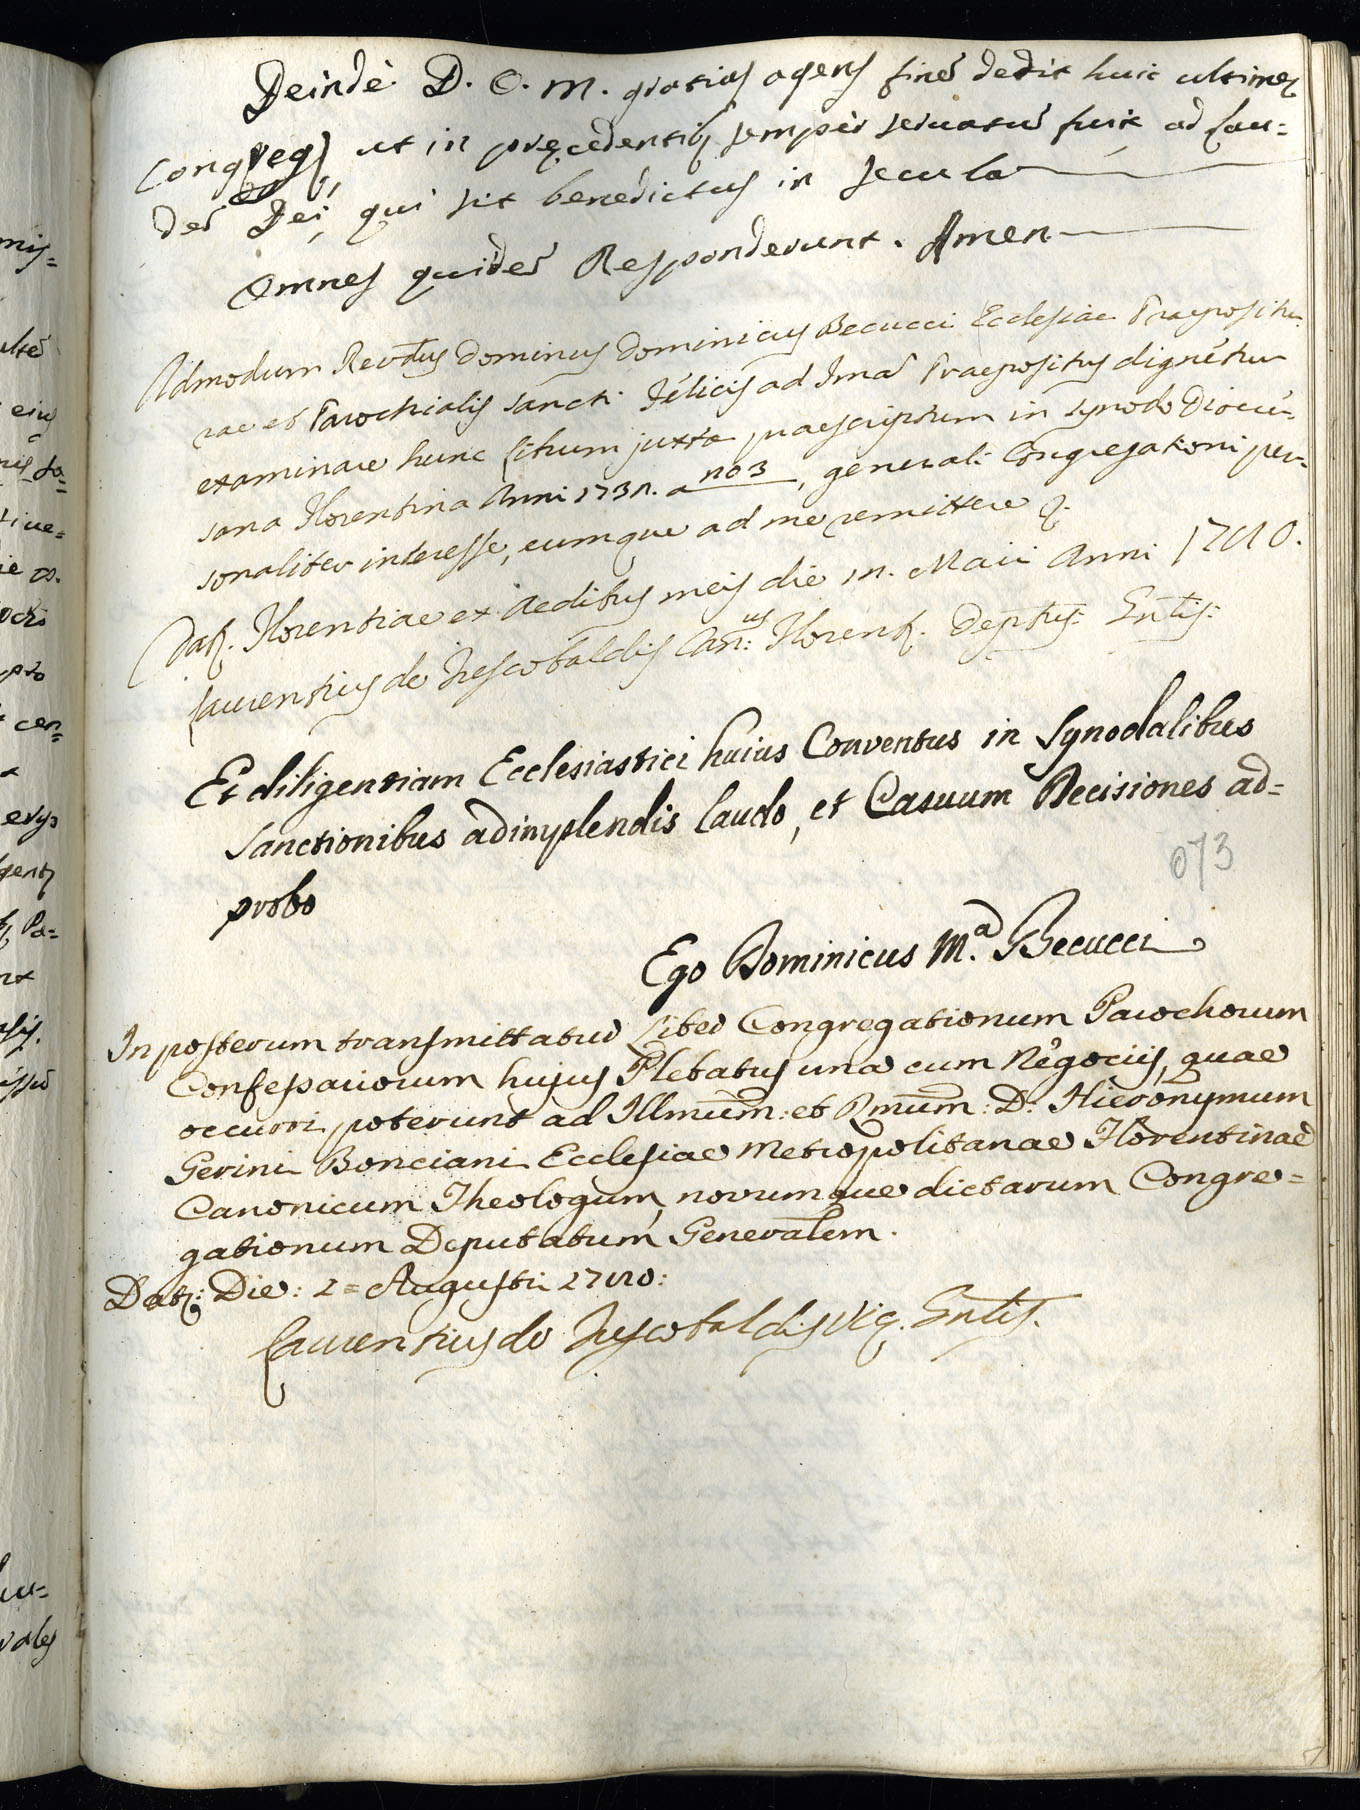 Deindè D. O. M. gratias agens finẽ dedit huic ultimę
Congreg̃, ut in pręcedentib; semper servatũ fuit ad lau=
dẽ Dei, qui sit benedictus in secula
Omnes quidẽ Responderunt. Amen
Admodum Revd̃us Dominus Dominicus Becucci Ecclesiae Praepositu-
rae et Parochialis Sancti Felicis ad Imã Praepositus dignetur
examinare hunc librum juxta praescriptum in Synodo Dioecé-
sana Florentina Anni 1732. a no 3, generali Congregationi per-
sonaliter interesse, eumque ad me remittere &.
Dat̃. Florentiae ex Aedibus meis die Maii Anni 1740.
Laurentius de Frescobaldis Can:us Florent̃. Deptus: Gñlis:
Et diligentiam Ecclesiastici huius Conventus in Synodalibus
Sanctionibus adimplendis laudo, et Casuum Decisiones ad=
probo
073
Ego Dominicus M.a Becucci
In posterum transmittatur Liber Congregationum Parochorum
Confessariorum hujus Plebatus una cum Negociis, quae
occurri poterunt ad Illmũm: et Rmũm: D: Hieronymum
Gerini Bonciani Ecclesiae Metropolitanae Florentinae
Canonicum Theologum, novumque dictarum Congre=
gationum Deputatum Generalem.
Dat̃: Die: 2= Augusti 1740:
Laurentius de Frescobaldis Vic. Gñlis.